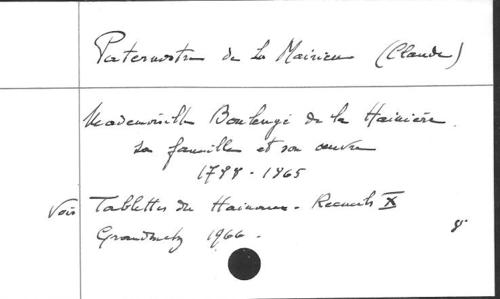 Paternostre de La Mairieu (Claude)
Mademoiselle Boulengé de la Hainière.
sa famille et son œuvre
1799 - 1965
Voir Tablettes du Hainaut - Recueils X
Grandmetz 1966.